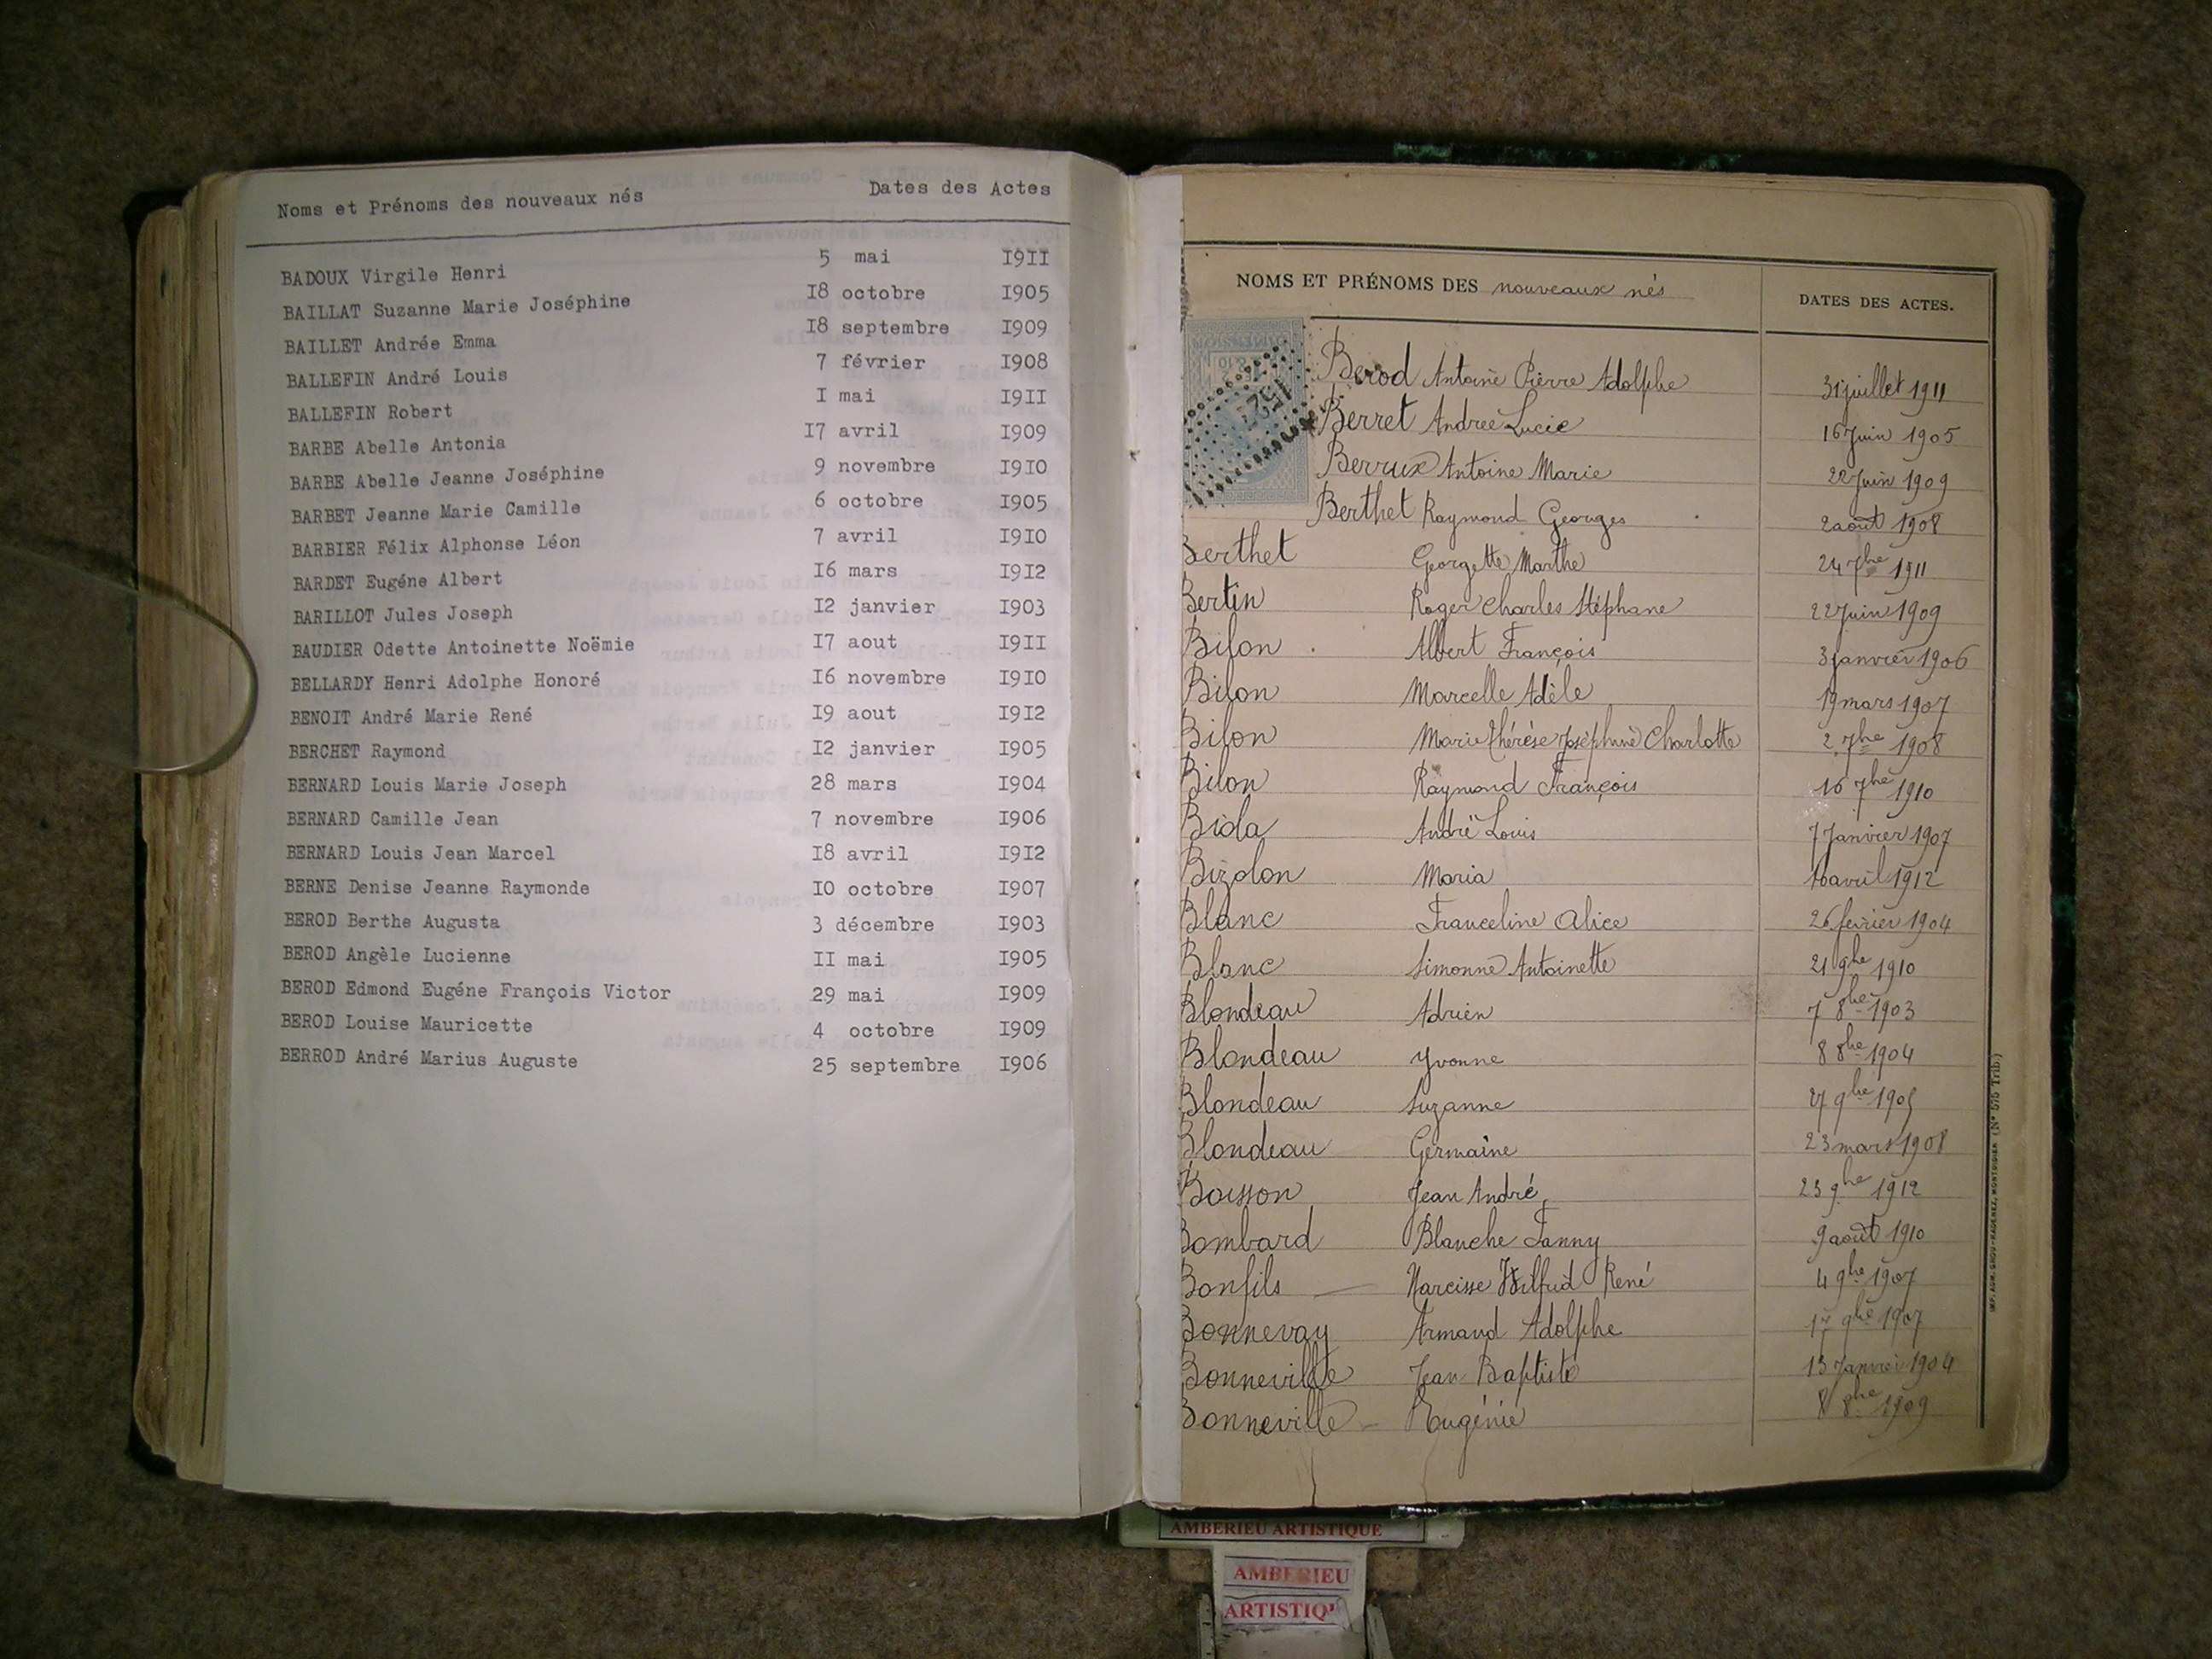 Noms et Prénoms des nouveaux nés Dates des Actes
BADOUX Virgile Henri 5 mai I9II
BAILLAT Suzanne Marie Joséphine I8 octobre I905
BAILLET Andrée Emma I8 septembre I909
BALLEFIN André Louis 7 février I908
BALLEFIN Robert I mai I9II
BARBE Abelle Antonia I7 avril I909
BARBE Abelle Jeanne Joséphine 9 novembre I9I0
BARBET Jeanne Marie Camille 6 octobre I905
BARBIER Félix Alphonse Léon 7 avril I9I0
BARDET Eugéne Albert I6 mars I9I2
BARILLOT Jules Joseph I2 janvier I903
BAUDIER Odette Antoinette Noëmie I7 aout I9II
BELLARDY Henri Adolphe Honoré I6 novembre I9I0
BENOIT André Marie René I9 aout I9I2
BERCHET Raymond I2 janvier I905
BERNARD Louis Marie Joseph 28 mars I904
BERNARD Camille Jean 7 novembre I906
BERNARD Louis Jean Marcel I8 avril I9I2
BERNE Denise Jeanne Raymonde I0 octobre I907
BEROD Berthe Augusta 3 décembre I903
BEROD Angèle Lucienne II mai I905
BEROD Edmond Eugéne François Victor 29 mai I909
BEROD Louise Mauricette 4 octobre I909
BERROD André Marius Auguste 25 septembre I906
NOMS ET PRÉNOMS DES nouveaux nés DATES DES ACTES.
Berod Antoine Pierre Adolphe 31 juillet 1911
Berret Andrée Lucie 16 Juin 1905
Berrux Antoine Marie 22 Juin 1909
Berthet Raymond Georges 2 août 1908
Berthet Georgette Marthe 24 7bre 1911
Bertin Roger Charles Stéphane 22 Juin 1909
Bilon Albert François 3 janvier 1906
Bilon Marcelle Adèle 19 mars 1907
Bilon Marie Thérèse Joséphine Charlotte 2 7bre 1908
Bilon Raymond François 16 7bre 1910
Biola André Louis 7 Janvier 1907
Bizolon Maria 16 avril 1912
Blanc Franceline Alice 26 février 1904
Blanc Simonne Antoinette 21 9bre 1910
Blondeau Adrien 7 8bre 1903
Blondeau Yvonne 8 8bre 1904
Blondeau Suzanne 27 9bre 1905
Blondeau Germaine 23 mars 1908
Boisson Jean André 23 9bre 1912
Bombard Blanche Fanny 9 août 1910
Bonfils Narcisse Wilfrid René 4 9bre 1907
Bonnevay Armand Adolphe 17 9bre 1907
Bonneville Jean Baptiste 13 Janvier 1904
Bonneville Eugénie 8 8bre 1909
(N° 575 Trib.)
AMBERIEU ARTISTIQUE
AMBERIEU
ARTISTIQ